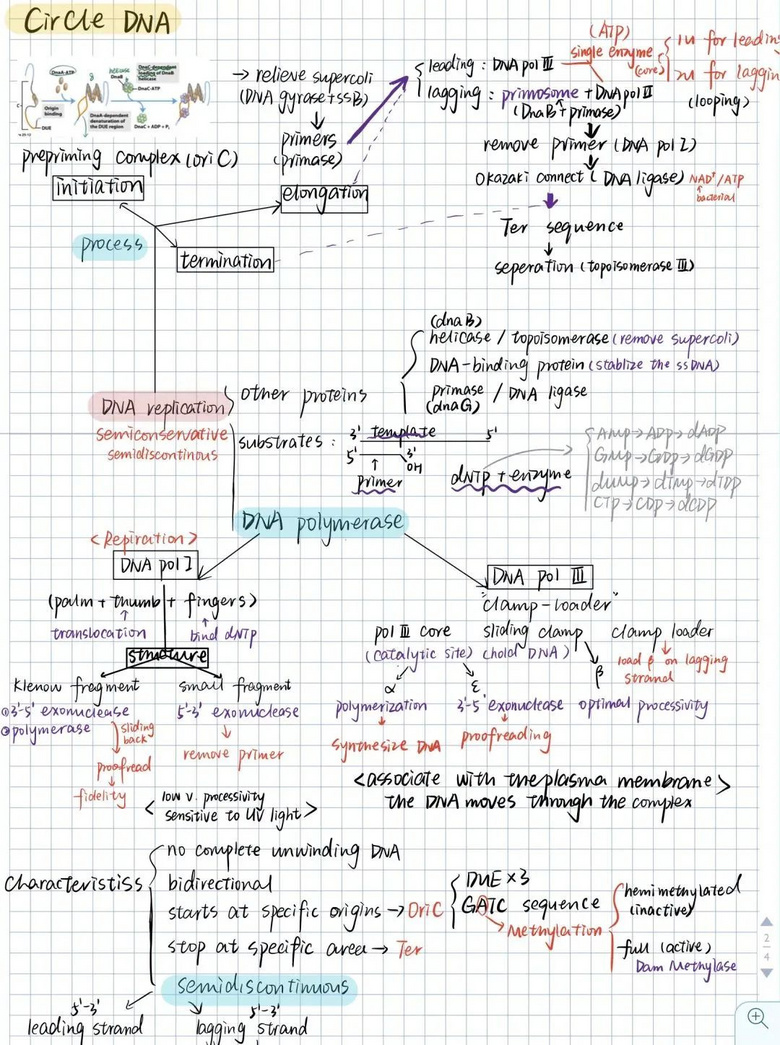 Circle DNA
DnaA-ATP
Origin binding
DUE
DnaA-dependent denaturation of the DUE region
helicase
DnaC-dependent loading of DnaB helicase
DnaC-ATP
DnaC + ADP + Pi
prepriming complex (ori C)
initiation
→ relieve supercoli
(DNA gyrase+ssB)
primers
(primase)
elongation
process
termination
(ATP)
leading : DNA pol III
single enzyme
(core)
lagging : primosome + DNA pol III
(DnaB + primase)
1u for leadin
2u for laggin
(looping)
remove primer (DNA pol I)
Okazaki connect ( DNA ligase)
NAD⁺/ATP
bacterial
Ter sequence
seperation (topoisomerase III)
DNA replication
semiconservative
semidiscontinous
other proteins
(dnaB)
helicase / topoisomerase (remove supercoli)
DNA-binding protein (stablize the ssDNA)
primase / DNA ligase
(dnaG)
substrates :
3' template 5'
5' 3'
OH
primer
dNTP + enzyme
AMP→ADP→dADP
GMP→GDP→dGDP
dUMP→dTMP→dTDP
CTP→CDP→dCDP
DNA polymerase
<Repiration>
DNA pol I
(palm + thumb + fingers)
translocation
bind dNTP
structure
Klenow fragment
① 3'-5' exonuclease
② polymerase
sliding back
proofread
fidelity
small fragment
5'-3' exonuclease
remove primer
< low v. processivity
sensitive to UV light >
DNA pol III
"clamp-loader"
pol III core
(catalytic site)
sliding clamp
(hold DNA)
clamp loader
load β on lagging
strand
α
polymerization
synthesize DNA
ε
3'-5' exonuclease
proofreading
β
optimal processivity
<associate with the plasma membrane>
the DNA moves through the complex
Characteristiss
no complete unwinding DNA
bidirectional
starts at specific origins → OriC
stop at specific area → Ter
semidiscontinuous
DUE ×3
GATC sequence
Methylation
hemimethylated
(inactive)
full (active)
Dam Methylase
5'-3'
leading strand
5'-3'
lagging strand
2
4